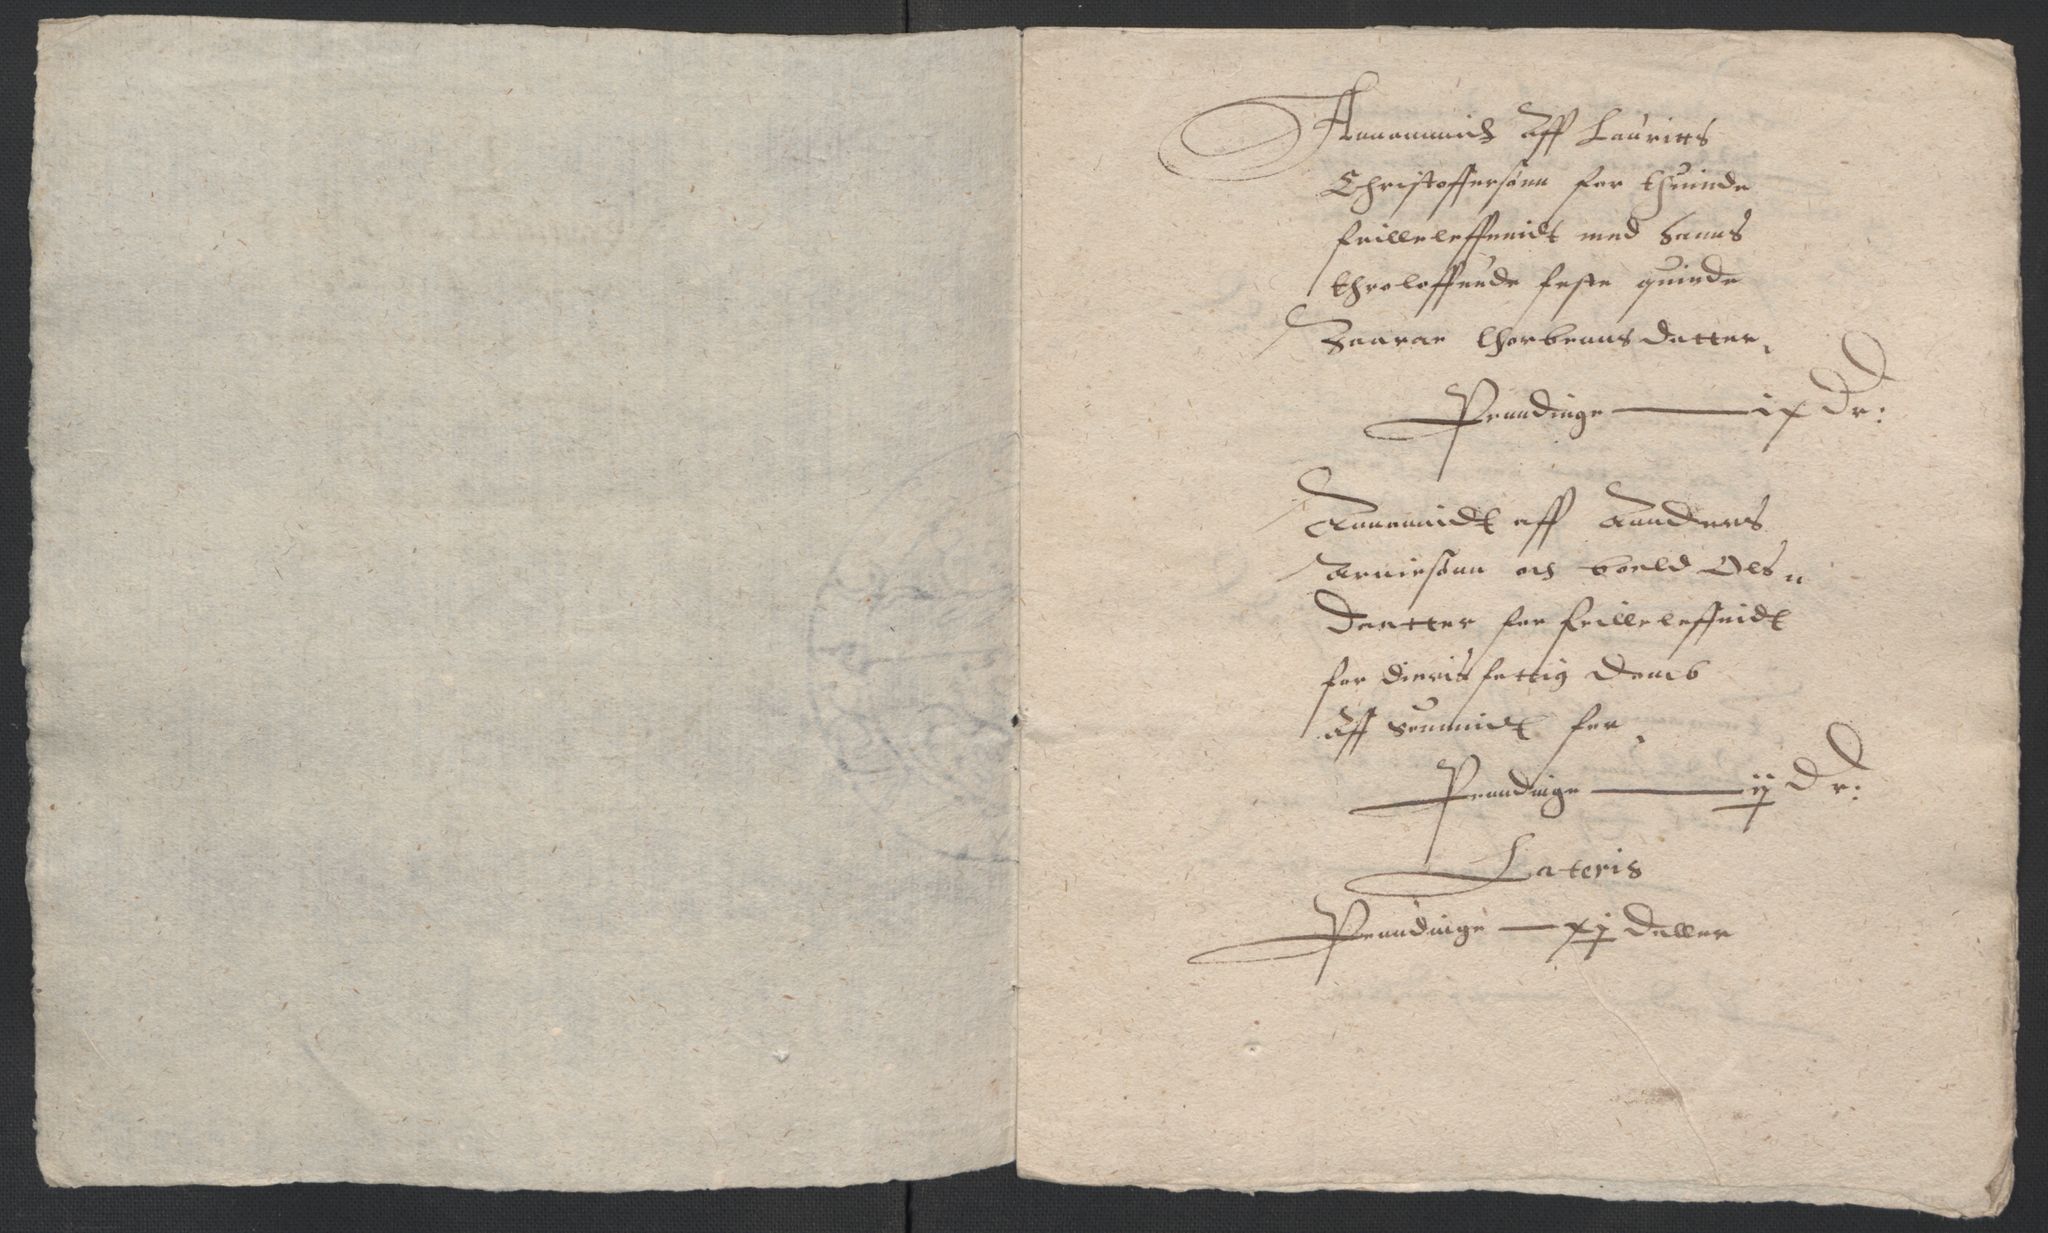 Annammidh Aff Lauritts
Christoffersønn for thuinde
frilleleffnidt med hanns
throloffuede feste quinde
Saarae thorbenns datter,
Penndinge — ix Dr:
Annammidt aff Aanders
Arniesønn och boeld Ols„
daatter for frilleleffnidt
for dieris fattig domb
Aff Summidt for,
Penndinge — ij Dr:
Lateris
Penndinge — xj daller